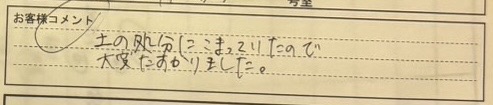 号室
お客様コメント
土の処分にこまっていたので
大変たすかりました。